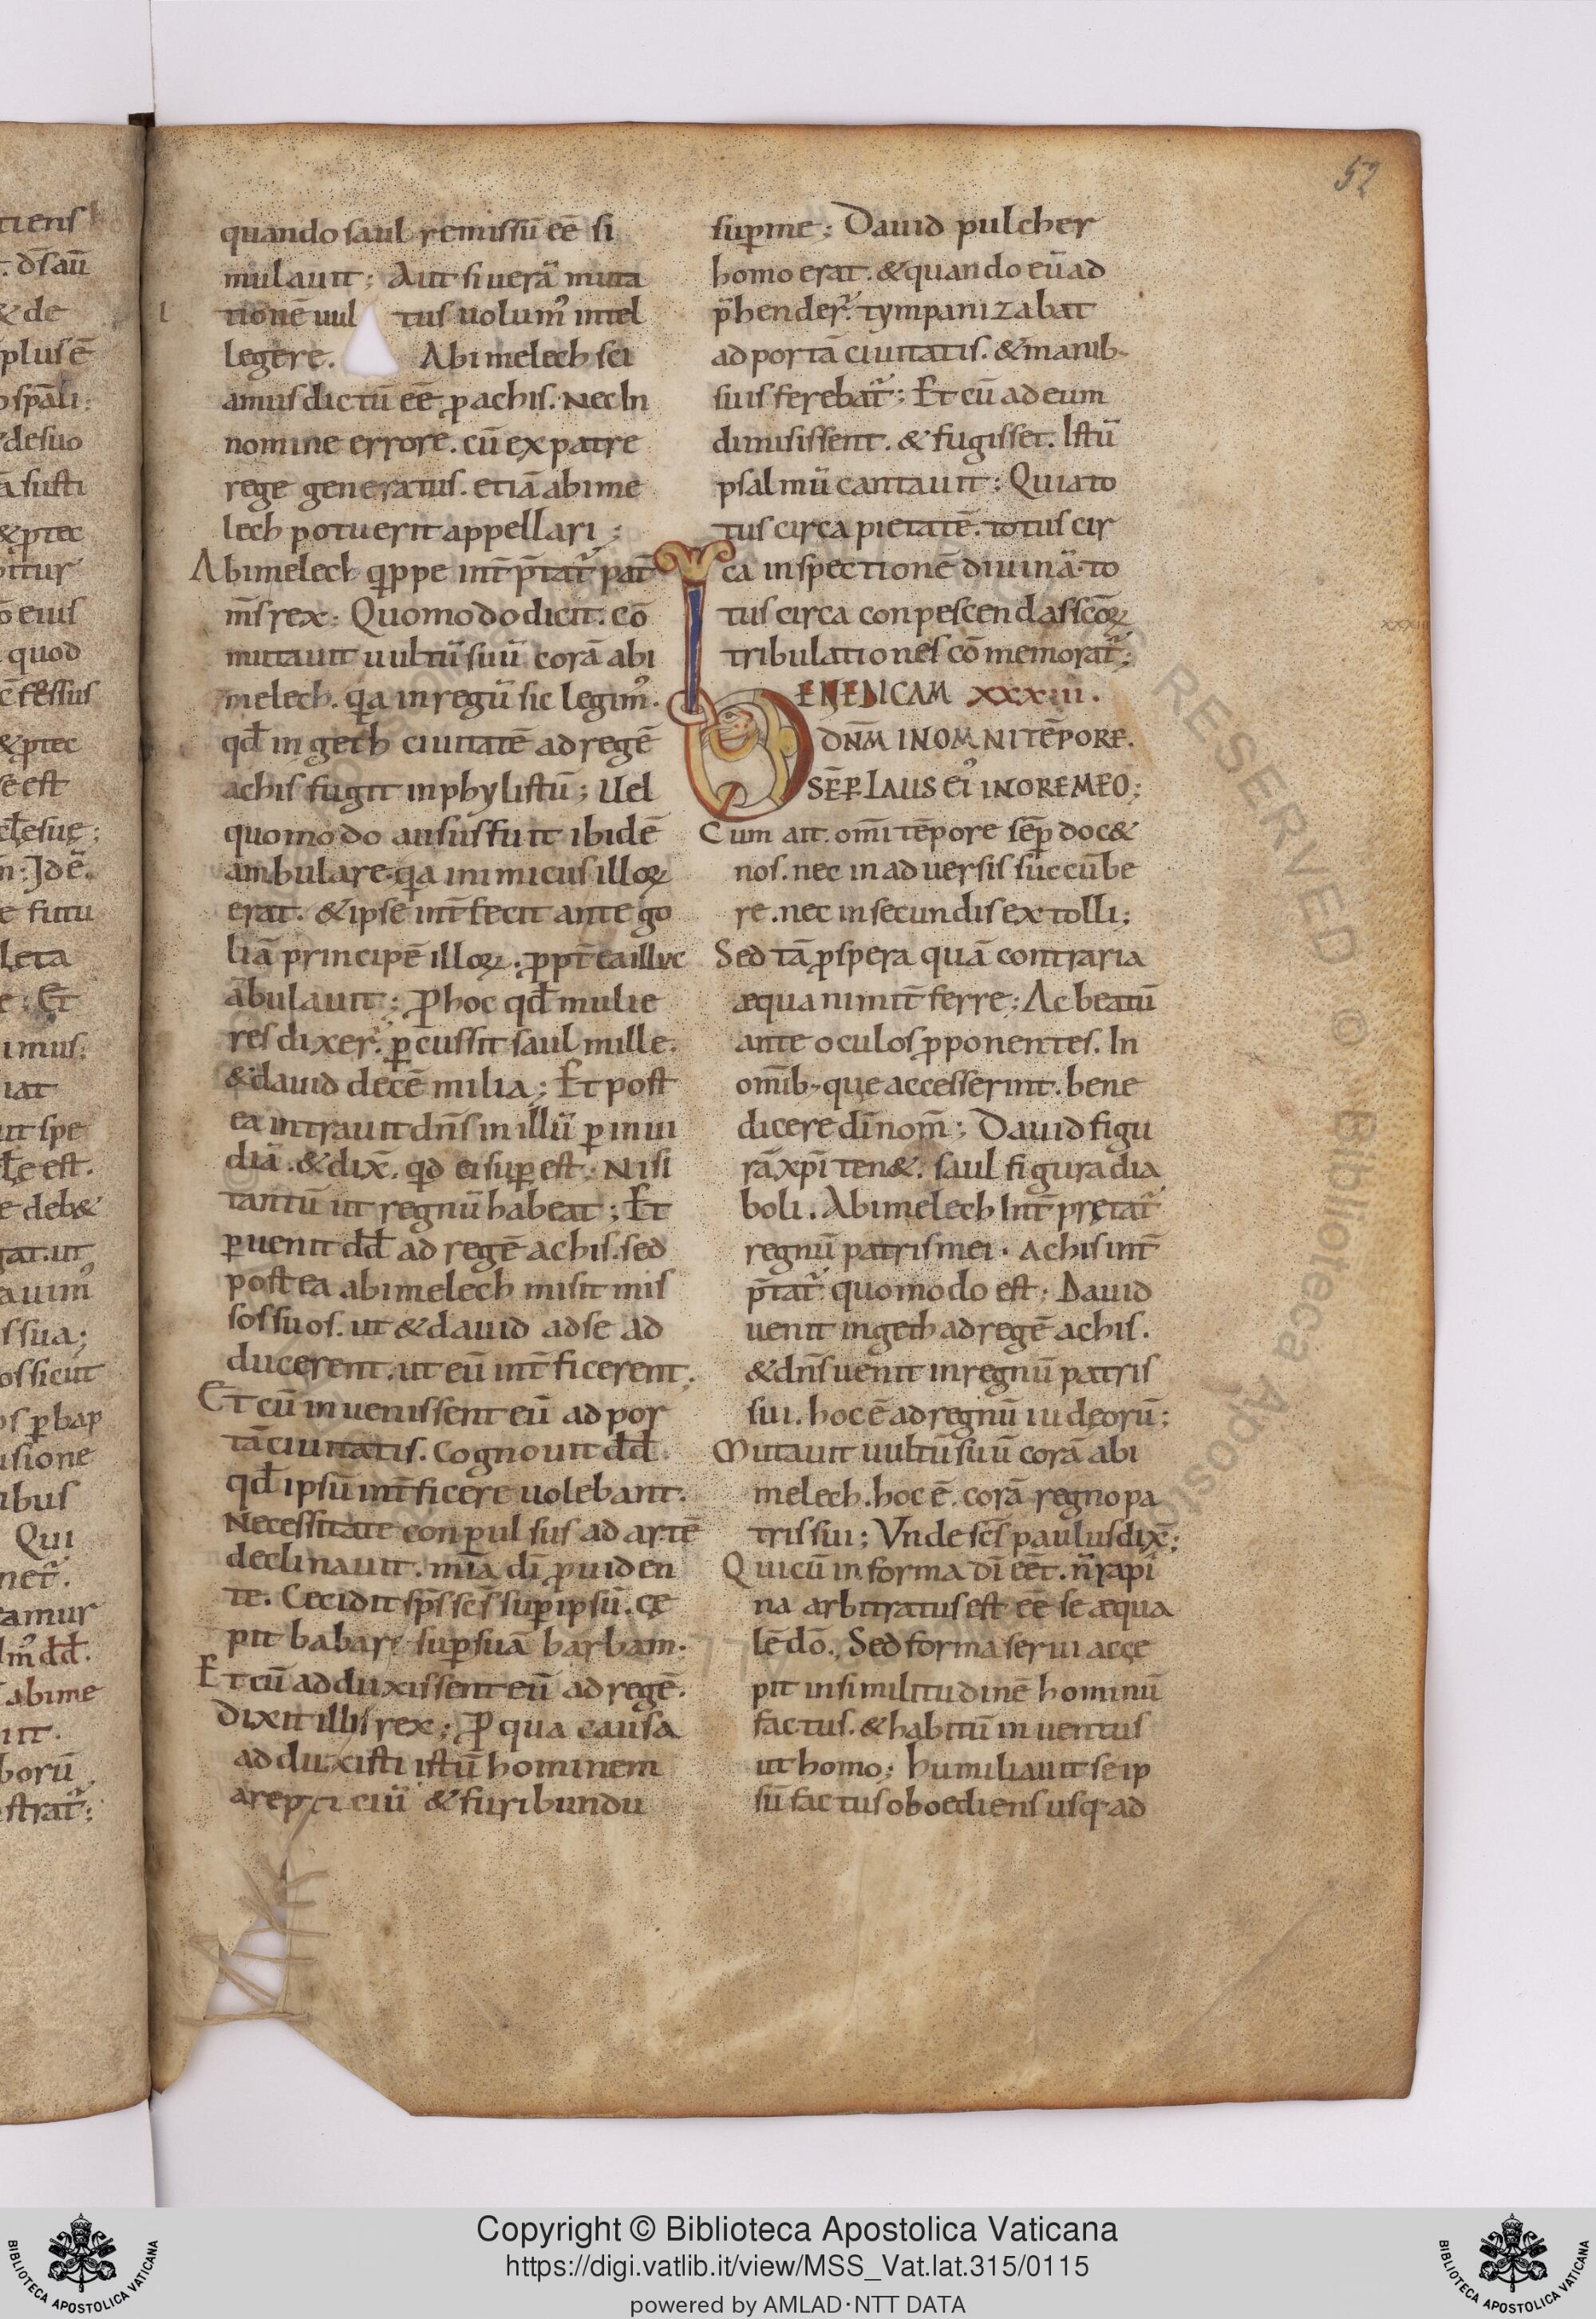 52
quando saul remissū eē si
mulauit; Aut si uerā muta
tionē uul tus uolum᾽ intel
legere. Abimelech sci
amus dictū eē ꝓ achis. Nec In
nomine errore. cū ex patre
rege generatus. etiā abime
lech potuerit appellari;
Abimelech qꝑpe int̄ p̄tat᷑ pat̄
m̄s rex: Quomodo dicit. cō
mutauit uultū suū corā abi
melech. qa in regū sic legim᾽.
qđ in geth ciuitatē ad regē
achis fugit in phylistū; Uel
quomodo ausus fuit ibidē
ambulare. qa inimicus illoꝝ
erat. & ipse int̄fecit ante go
liā principē illoꝝ. ꝓpt̄ea illuc
ābulauit; P̱ hoc qđ mulie
res dixer᷑. ꝑcussit saul mille.
& dauid decē milia; Et post
ea intrauit dn̄s in illū ꝑ inui
diā. & dix̄. qd ei suꝑ est. Nisi
tantū ut regnū habeat; Et
ꝑuenit dđ ad regē achis. sed
postea abimelech misit mis
sos suos. ut & dauid ad se ad
ducerent. ut eū int̄ficerent.
Et cū inuenissent eū ad por
tā ciuitatis. Cognouit dđ
qđ ipsū int̄ficere uolebant.
Necessitate conpulsus ad artē
declinauit. mīa dī ꝓuiden
te. Cecidit sp̄s sc̄s suꝑ ipsū. cę
pit babare suꝑ suā barbam.
Et cū adduxissent eū ad regē.
Dixit illis rex; P̱ qua causa
adduxisti istū hominem
arepticiū & furibundū
suꝑ me; Dauid pulcher
homo erat. & quando eū ad
p̄hender᷑. tympanizabat
ad portā ciuitatis. & manib;
suis ferebat᷑; Et cū ad eum
dimisissent. & fugisset. Istū
psalmū cantauit; Quia to
tus circa pietatē. totus cir
ca inspectionē diuinā. to
tus circa conpescendas sc̄oꝝ
tribulationes cōmemorat᷑;
BENEDICAM XXXIII.
DN̄M IN OMNI TĒPORE.
SĒP̱ LAUS EI᾽ IN ORE MEO;
Cum ait. om̄i tēpore sēꝑ doc&
nos. nec in aduersis succūbe
re. nec in secundis extolli;
Sed tā ꝓspera quā contraria
æquanimit̄ ferre; Ac beatū
ante oculos ꝓponentes. In
omīb; que accesserint. bene
dicere dī nom̄; Dauid figu
rā xp̄i ten&. saul figura dia
boli. Abimelech Int̄pretat᷑
regnū patris mei. Achis int̄
p̄tat᷑ quomodo est; Dauid
uenit in geth ad regē achis.
& dn̄s uenit in regnū patris
sui. hoc ē ad regnū iudęorū;
Mutauit uultū suū corā abi
melech. hoc ē. corā regno pa
tris sui; Vnde sc̄s paulus dix̄;
Qui cū in forma dī eēt. n̄ rapi
na arbitratus est eē se æqua
lē dō. Sed forma serui accę
pit in similitudinē hominū
factus. & habitū inuentus
ut homo; humiliauit se ip
sū factus oboediens usq; ad
Copyright © Biblioteca Apostolica Vaticana
https://digi.vatlib.it/view/MSS_Vat.lat.315/0115
powered by AMLAD·NTT DATA